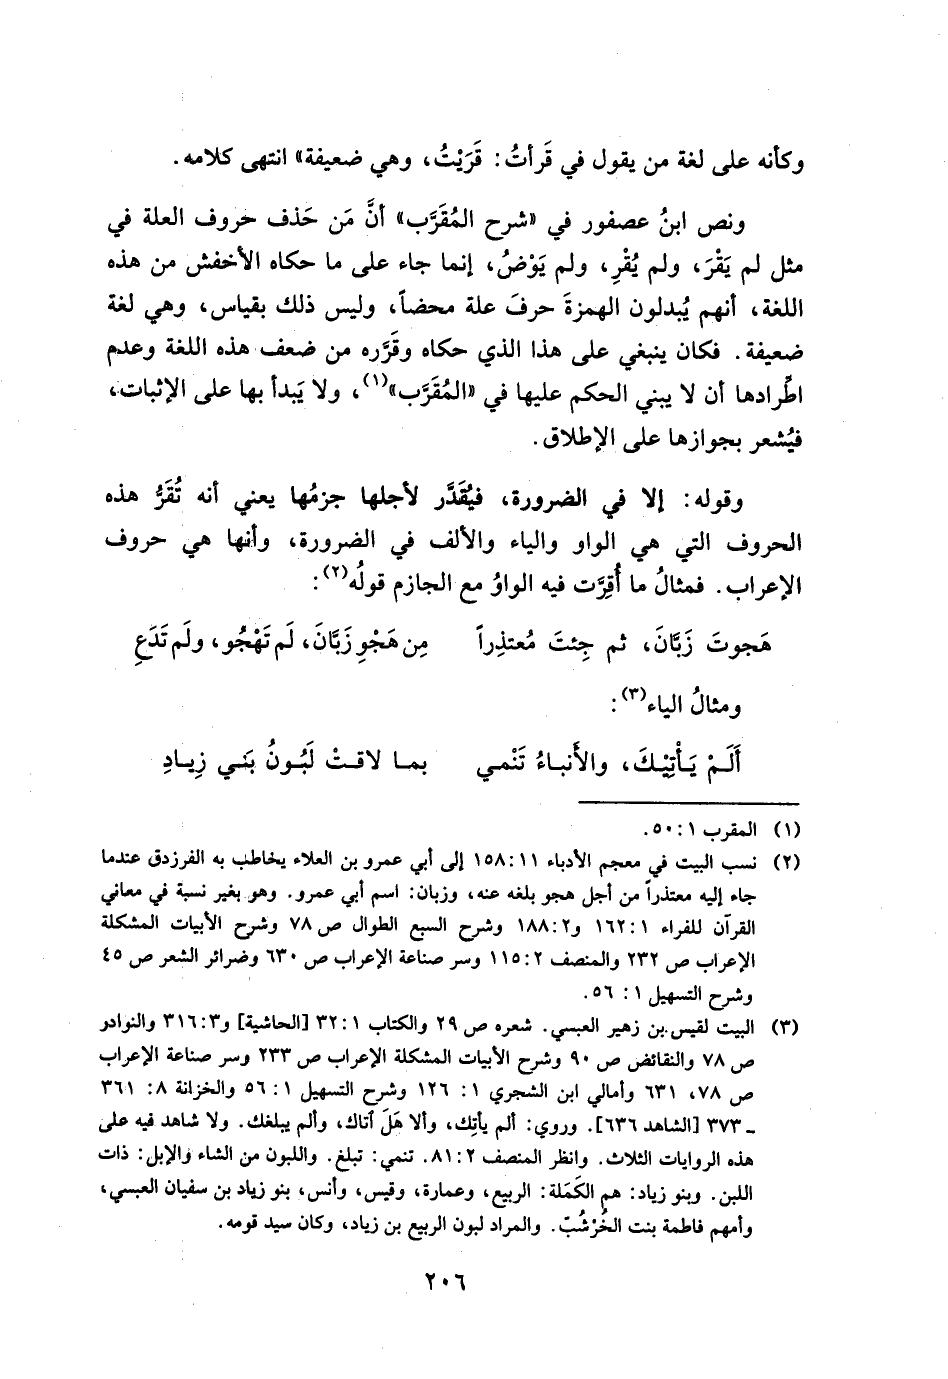 وكأنه على لغة من يقول في قَرأتُ: قَرَيْتُ، وهي ضعيفة» انتهى كلامه.
ونص ابنُ عصفور في «شرح المُقَرَّب» أنَّ مَن حَذف حروف العلة في
مثل لم يَقْرَ، ولم يُقْرِ، ولم يَوْضُ، إنما جاء على ما حكاه الأخفش من هذه
اللغة، أنهم يُبدلون الهمزةَ حرفَ علة محضاً، وليس ذلك بقياس، وهي لغة
ضعيفة. فكان ينبغي على هذا الذي حكاه وقَرَّره من ضعف هذه اللغة وعدم
اطِّرادها أن لا يبني الحكم عليها في «المُقَرَّب»(١)، ولا يَبدأ بها على الإثبات،
فيُشعر بجوازها على الإطلاق.
وقوله: إلا في الضرورة، فيُقَدَّر لأجلها جزمُها يعني أنه تُقَرُّ هذه
الحروف التي هي الواو والياء والألف في الضرورة، وأنها هي حروف
الإعراب. فمثالُ ما أُقِرَّت فيه الواوُ مع الجازم قولُه(٢):
هَجوتَ زَبَّانَ، ثم جِئتَ مُعتذِراً مِن هَجْوِ زَبَّانَ، لَم تَهْجُو، ولَم تَدَعِ
ومثالُ الياء(٣):
أَلَمْ يَأْتِيْكَ، والأَنباءُ تَنْمي بما لاقتْ لَبُونُ بَني زِيادِ
(١) المقرب ١: ٥٠.
(٢) نسب البيت في معجم الأدباء ١١: ١٥٨ إلى أبي عمرو بن العلاء يخاطب به الفرزدق عندما
جاء إليه معتذراً من أجل هجو بلغه عنه، وزبان: اسم أبي عمرو. وهو بغير نسبة في معاني
القرآن للفراء ١: ١٦٢ و٢: ١٨٨ وشرح السبع الطوال ص ٧٨ وشرح الأبيات المشكلة
الإعراب ص ٢٣٢ والمنصف ٢: ١١٥ وسر صناعة الإعراب ص ٦٣٠ وضرائر الشعر ص ٤٥
وشرح التسهيل ١: ٥٦.
(٣) البيت لقيس بن زهير العبسي. شعره ص ٢٩ والكتاب ١: ٣٢ [الحاشية] و٣: ٣١٦ والنوادر
ص ٧٨ والنقائض ص ٩٠ وشرح الأبيات المشكلة الإعراب ص ٢٣٣ وسر صناعة الإعراب
ص ٧٨، ٦٣١ وأمالي ابن الشجري ١: ١٢٦ وشرح التسهيل ١: ٥٦ والخزانة ٨: ٣٦١
ـ ٣٧٣ [الشاهد ٦٣٦]. وروي: ألم يأتِك، وألا هَلَ أتاك، وألم يبلغك. ولا شاهد فيه على
هذه الروايات الثلاث. وانظر المنصف ٢: ٨١. تنمي: تبلغ. واللبون من الشاء والإبل: ذات
اللبن. وبنو زياد: هم الكَمَلة: الربيع، وعمارة، وقيس، وأنس، بنو زياد بن سفيان العبسي،
وأمهم فاطمة بنت الخُرْشُبّ. والمراد لبون الربيع بن زياد، وكان سيد قومه.
٢٠٦